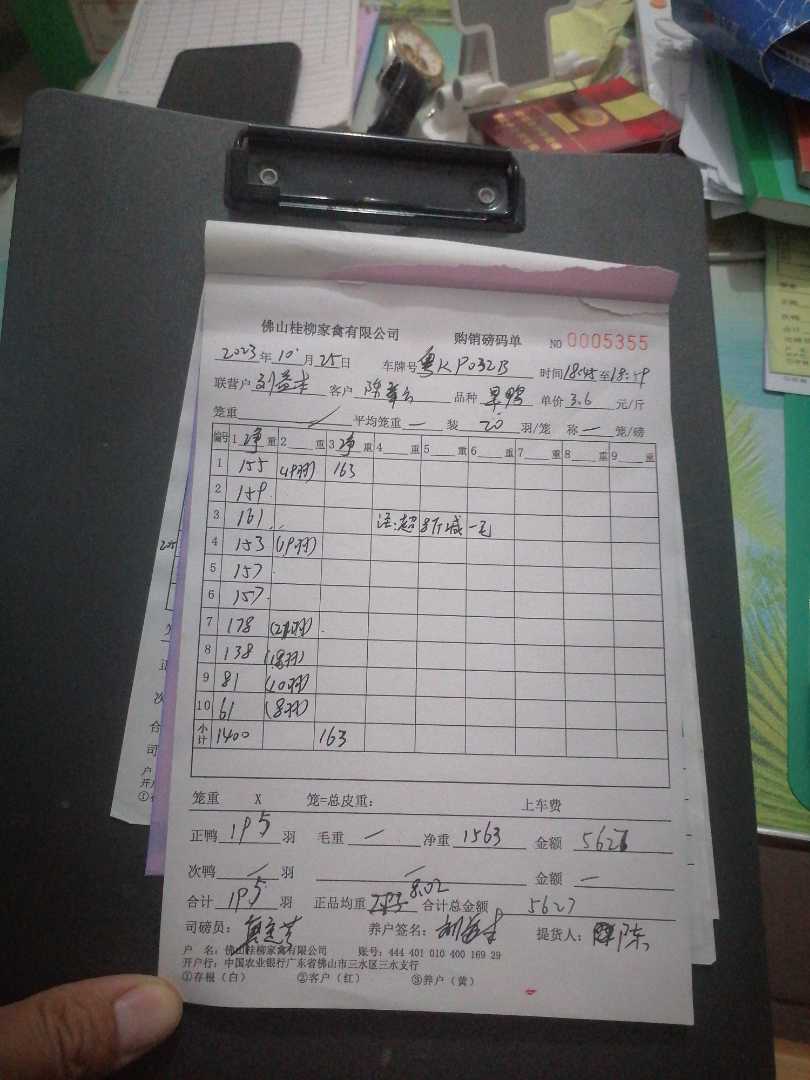 佛山桂柳家禽有限公司 购销磅码单 NO 0005355
2023年10月25日 车牌号 粤KP032B 时间18:45至18:59
联营户 客户 品种 单价 3.6 元/斤
笼重 / 平均笼重 — 装 20 羽/笼 称 — 笼/磅
编号 1 净 重 2 重 3 净 重 4 重 5 重 6 重 7 重 8 重 9 重
1 155 (19羽) 163
2 159
3 161 注:超8斤减一毛
4 153 (19羽)
5 157
6 157
7 178
8 138 (18羽)
9 81 (10羽)
10 61 (8羽)
小计 1400 163
笼重 X 笼=总皮重: 上车费
正鸭 195 羽 毛重 — 净重 1563 金额 5627
次鸭 — 羽 — 金额 —
合计 195 羽 正品均重 8.02 合计总金额 5627
司磅员: 养户签名: 提货人: 陈
户 名:佛山桂柳家禽有限公司 账号:444 401 010 400 169 29
开户行:中国农业银行广东省佛山市三水区三水支行
①存根(白) ②客户(红) ③养户(黄)